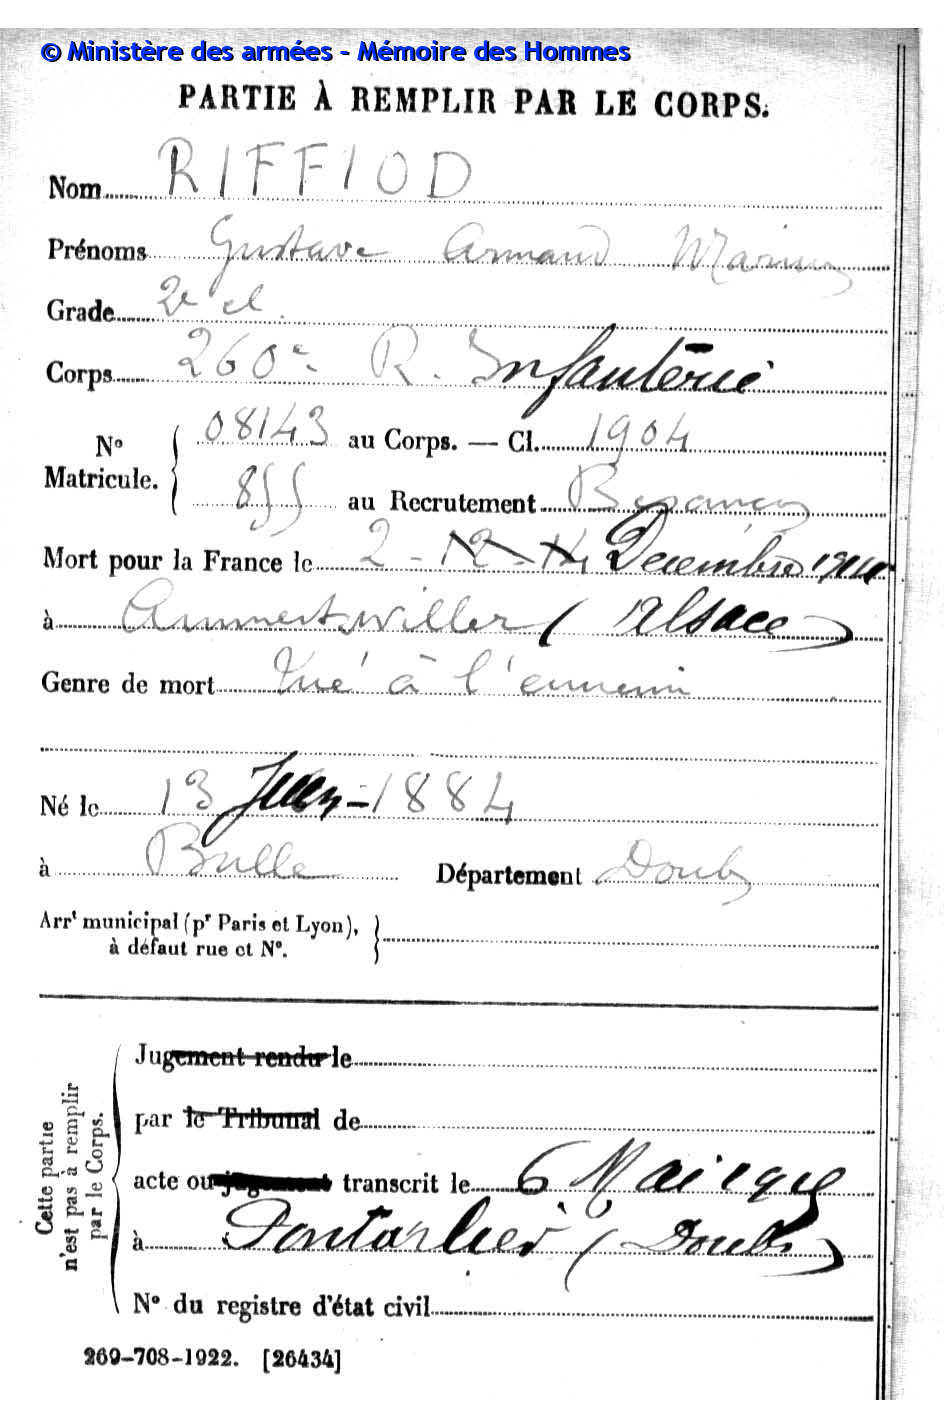 © Ministère des armées - Mémoire des Hommes
PARTIE À REMPLIR PAR LE CORPS.
Nom RIFFIOD
Prénoms Gustave Armand Marius
Grade 2e cl.
Corps 260e R. Infanterie
No Matricule. { 08143 au Corps. — Cl. 1904
855 au Recrutement Besançon
Mort pour la France le 2 - 12 - 14 Décembre 1914
à Ammertzwiller (Alsace)
Genre de mort Tué à l'ennemi
Né le 13 - 1884
à Bulle Département Doubs
Arrt municipal (pr Paris et Lyon),
à défaut rue et No. }
Cette partie n'est pas à remplir par le Corps.
Jugement rendu le
par le Tribunal de
acte ou jugement transcrit le 6 Mai
à Pontarlier (Doubs)
No du registre d'état civil
269-708-1922. [26434]